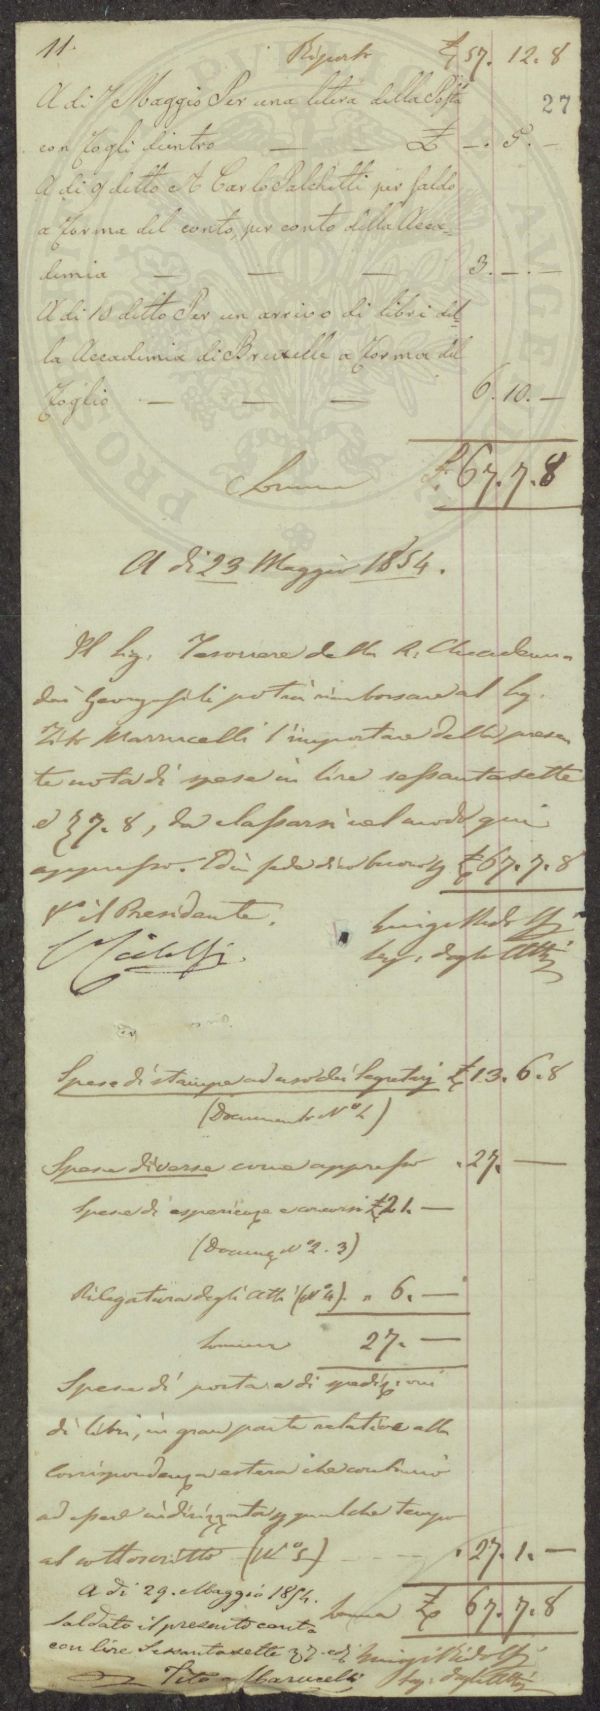 11. Riporto £ 57. 12. 8
27
A di 7 Maggio Per una letera della Posta
con fogli dientro — — £ —. 5. —
A di 9 detto A Carlo Palchetti per saldo
a forma del conto, per conto della Acca-
demia — — — 3. —. —
A di 10 detto Per un arrivo di libri del-
la Accademia di Bruxelle a forma del
foglio — — — 6. 10. —
Somma £. 67. 7. 8
A di 23 Maggio 1854.
Il Sig. Tesoriere della R. Accademia
dei Georgofili potrà rimborsare al Sig.
Tito Marrucelli l'importare della presen
te nota di spese in lire sessantasette
e 7. 8, da classarsi nel modo qui
appresso. £ 67. 7. 8
Vo il Presidente.
Luigi Ridolfi
C Ridolfi.
Seg. degli Atti
Spese di stampe ad uso dei Segretarj £ 13. 6. 8
(Documento No 1)
Spese diverse come appresso . 27. —
Spese di esperienze e concorsi £ 21. —
(Docum. No 2. 3)
Rilegatura degli Atti (No 4) . " 6. —
Somma 27. —
Spese di porto e di spedizioni
di libri, in gran parte relative alla
Corrispondenza estera che continuò
ad essere indirizzata per qualche tempo
al sottoscritto (No 5) . 27. 1. —
Somma £ 67. 7. 8
A di 29. Maggio 1854.
Saldato il presente conto
con lire Sesantasette 7. e 8
Luigi Ridolfi
Seg. degli Atti
Tito Marucelli